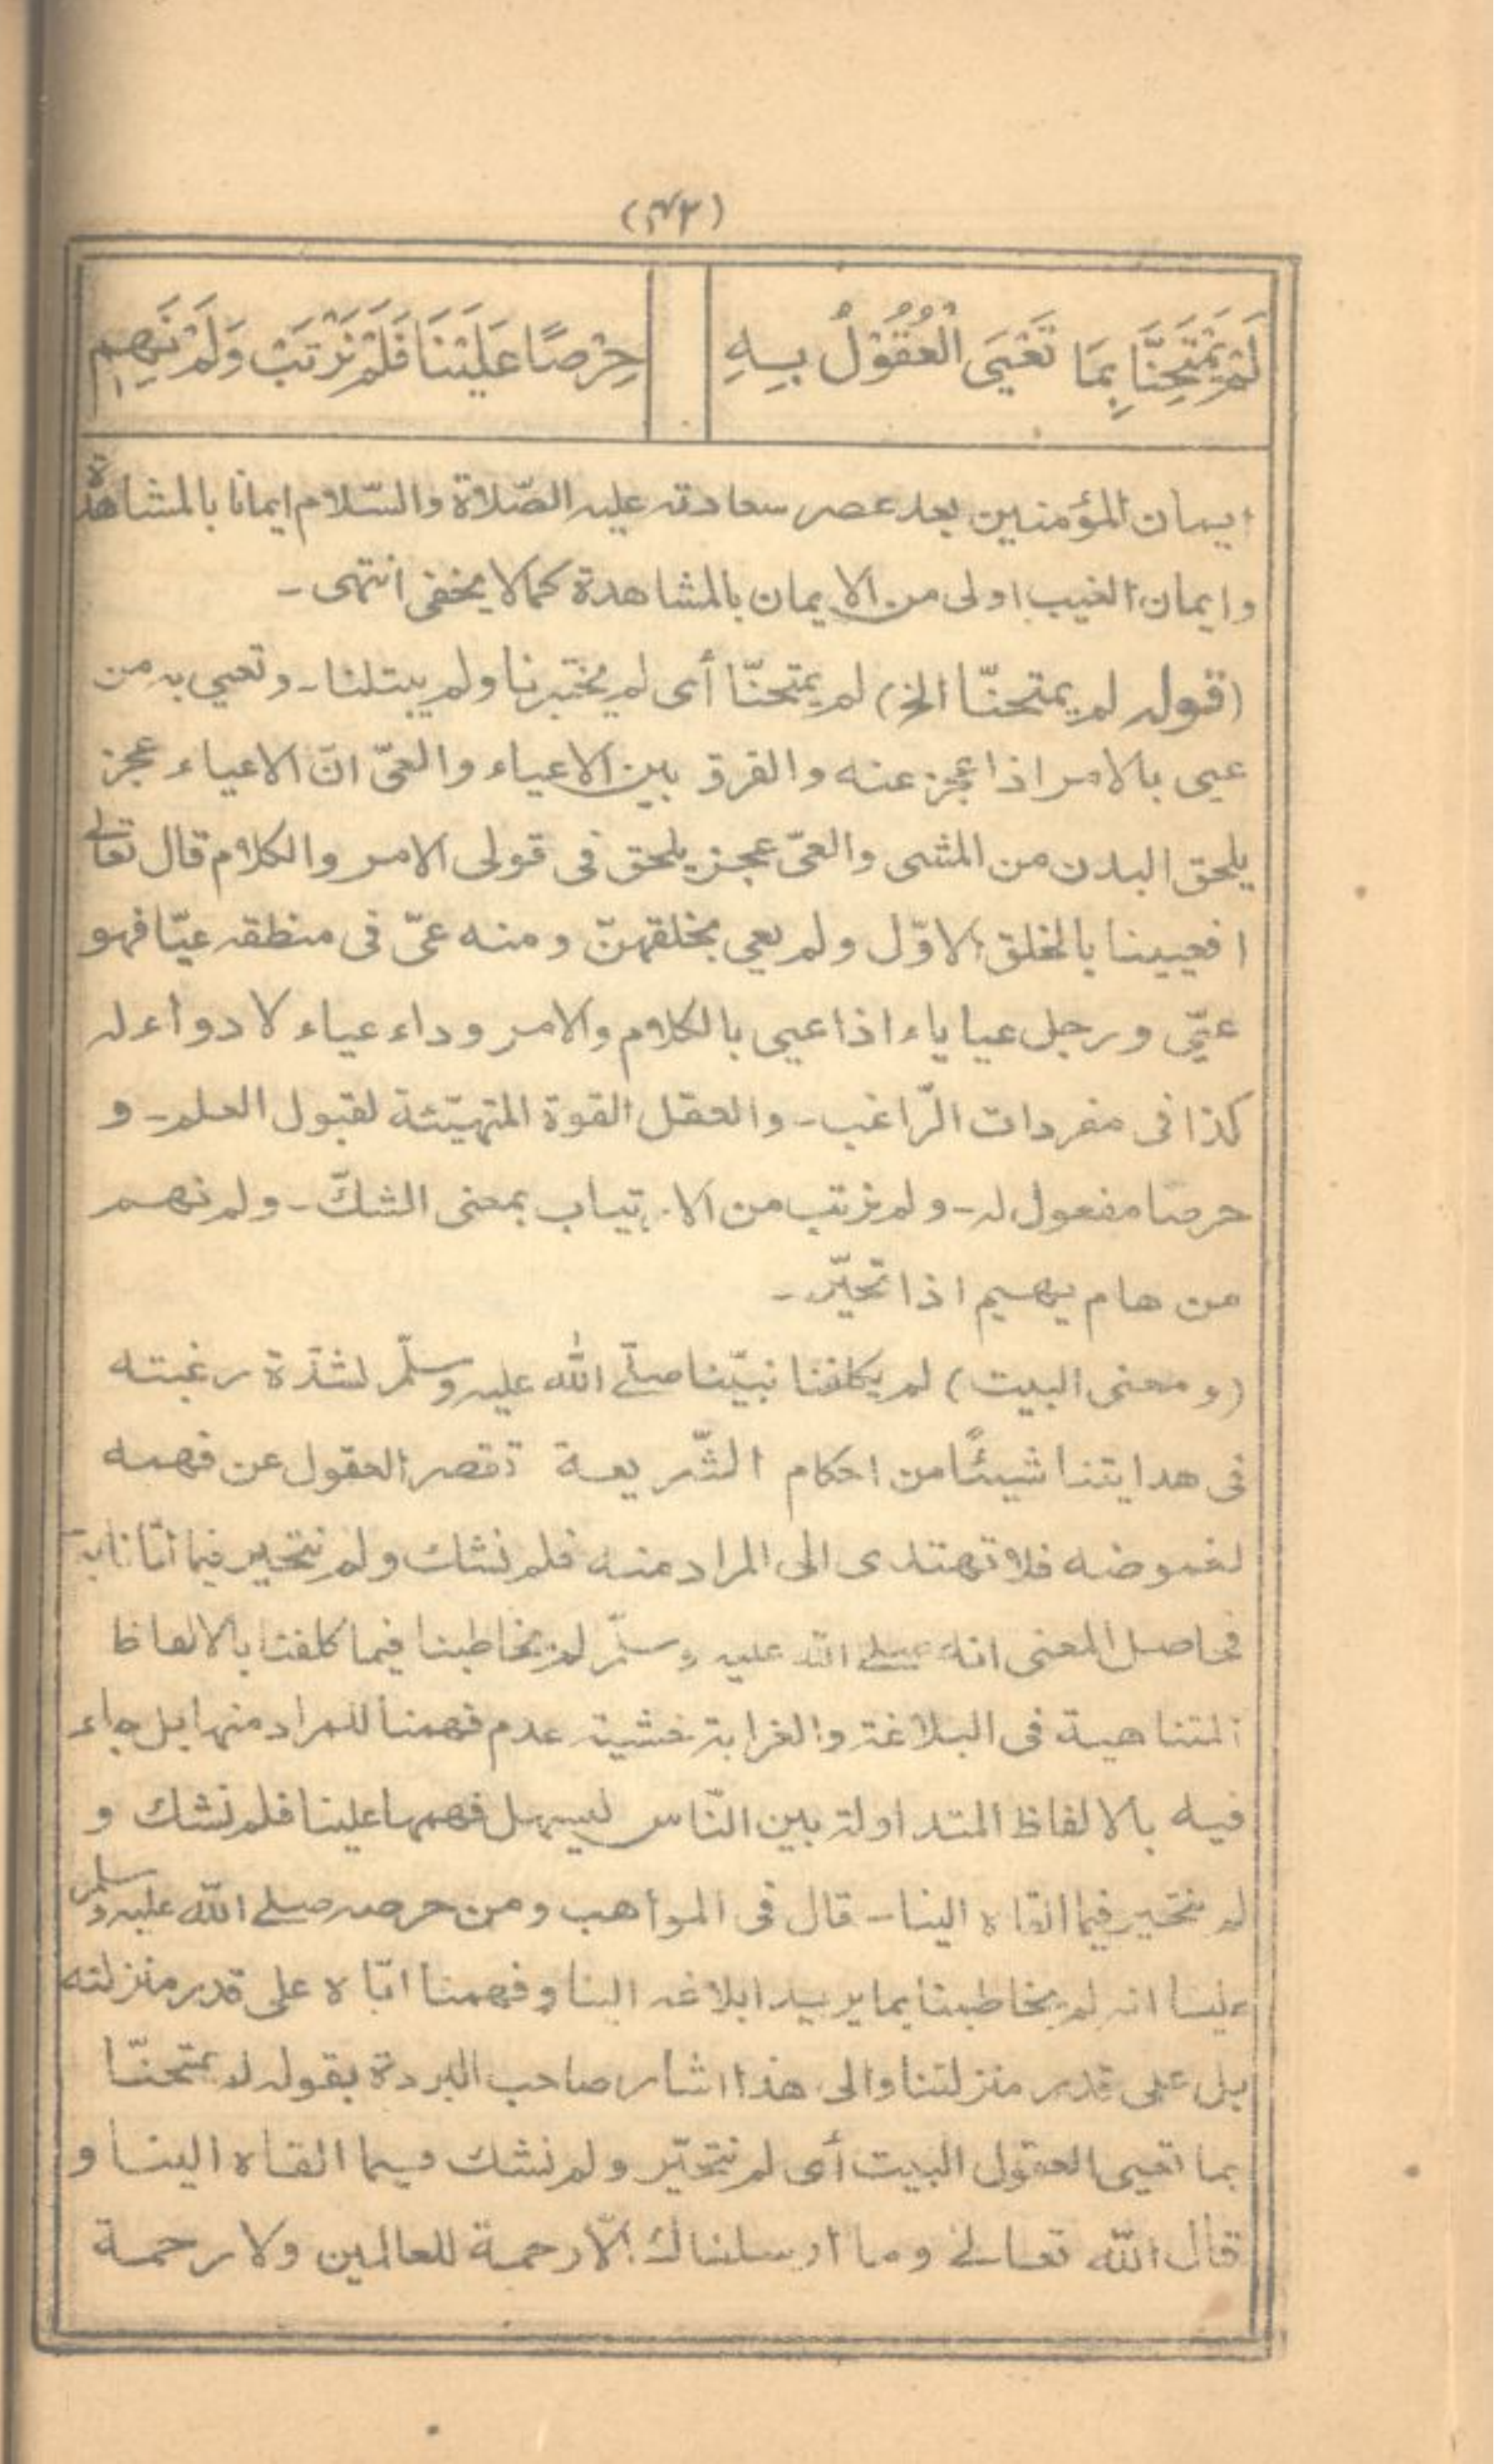 (۴۳)
لَمْ يَمْتَحِنَّا بِمَا تَعْيَى الْعُقُوْلُ بِهِ
حِرْصًا عَلَيْنَا فَلَمْ نَرْتَبْ وَلَمْ نَهِمِ
ايمان المؤمنين بعد عصر سعادته عليه الصّلاة والسّلام ايمانا بالمشاهدة
وايمان الغيب اولى من الايمان بالمشاهدة كما لا يخفى انتهى۔
(قوله لم يمتحنّا الخ) لم يمتحنّا أى لم يختبرنا ولم يبتلنا۔ وتعيي به من
عيى بالامر اذا عجز عنه والفرق بين الاعياء والعىّ انّ الاعياء عجز
يلحق البدن من المشى والعىّ عجز يلحق فى قولى الامر والكلام قال تعالى
افعيينا بالخلق الاوّل ولم يعي بخلقهنّ ومنه عىّ فى منطقه عيّا فهو
عيّى ورجل عياياء اذا عيى بالكلام والامر وداء عياء لا دواء له
كذا فى مفردات الرّاغب۔ والعقل القوة المتهيّئة لقبول العلم۔ و
حرصا مفعول له۔ ولم نرتب من الارتياب بمعنى الشكّ۔ ولم نهم
من هام يهيم اذا تحيّر۔
(ومعنى البيت) لم يكلفنا نبيّنا صلّے الله عليه وسلّم لشدّة رغبته
فى هدايتنا شيئًا من احكام الشّريعة تقصر العقول عن فهمه
لغموضه فلا تهتدى الى المراد منه فلم نشك ولم نتحير فيما اتانا به
فحاصل المعنى انه صلے الله عليه وسلّم لم يخاطبنا فيما كلفنا بالالفاظ
المتناهية فى البلاغة والغرابة خشية عدم فهمنا للمراد منها بل جاء
فيه بالالفاظ المتداولة بين النّاس ليسهل فهمها علينا فلم نشك و
لم نتحير فيما القاه الينا۔ قال فى المواهب ومن حرصه صلے الله عليه وسلم
علينا انه لم يخاطبنا بما يريد ابلاغه الينا وفهمنا ايّاه على قدر منزلته
بل على قدر منزلتنا والى هذا اشار صاحب البردة بقوله لم يمتحنّا
بما تعيى العقول البيت أى لم نتحيّر ولم نشك فيما القاه الينا و
قال الله تعالے وما ارسلناك الّا رحمة للعالمين ولا رحمة